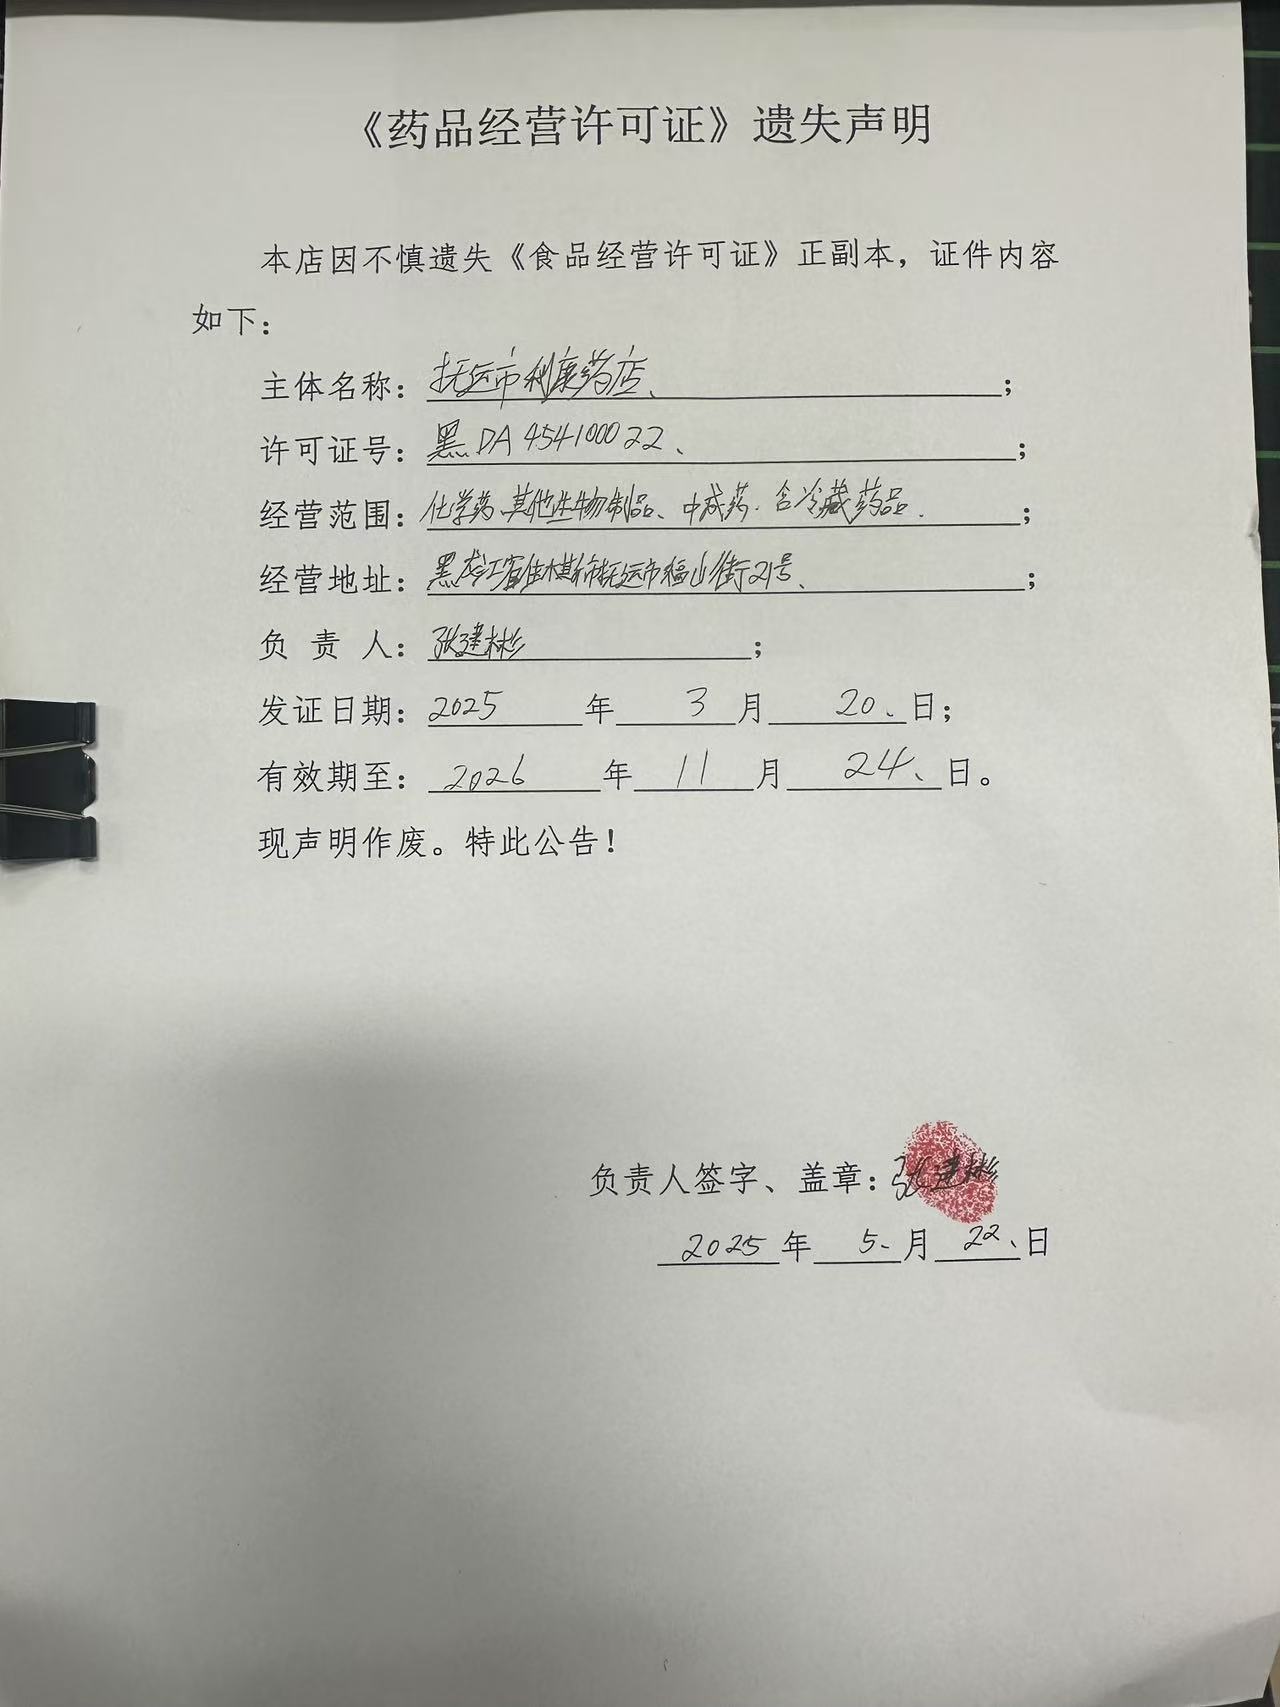 《药品经营许可证》遗失声明
本店因不慎遗失《食品经营许可证》正副本，证件内容
如下：
主体名称：抚远市利康药店、；
许可证号：黑DA454100022、；
经营范围：化学药、其他生物制品、中成药.含冷藏药品.；
经营地址：黑龙江省佳木斯市抚远市福山街21号、；
负 责 人：张建彬；
发证日期：2025年3月20、日；
有效期至：2026年11月24、日。
现声明作废。特此公告！
负责人签字、盖章：张建彬
2025年5、月22、日